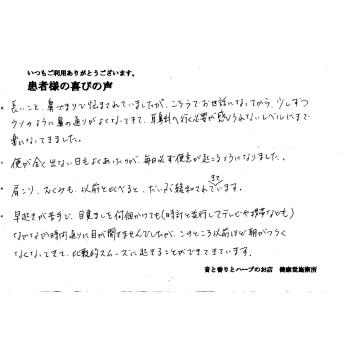 いつもご利用ありがとうございます。
患者様の喜びの声
・長いこと、鼻づまりで悩まされていましたが、こちらでお世話になってから、少しずつ
ウソのように鼻の通りがよくなってきて、耳鼻科へ行く必要が感じられないレベルにまで
楽になってきました。
・便が全く出ない日もよくあったのが、毎日必ず便意が起こるようになりました。
・肩こり、むくみも、以前とくらべると、だいぶ緩和されてきています。
・早起きが苦手で、目覚ましを何個かけても(時計と並行してテレビや携帯なども)
なかなか時間通りに目が開きませんでしたが、このところ以前ほど朝がつらく
なくなってきて、比較的スムーズに起きることができてきています。
音と香りとハーブのお店 健康堂施術所